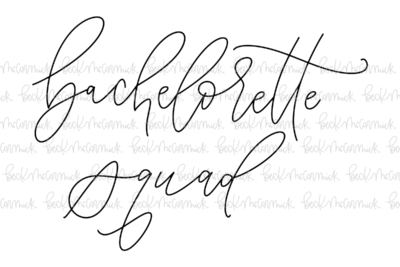 bachelorette
squad